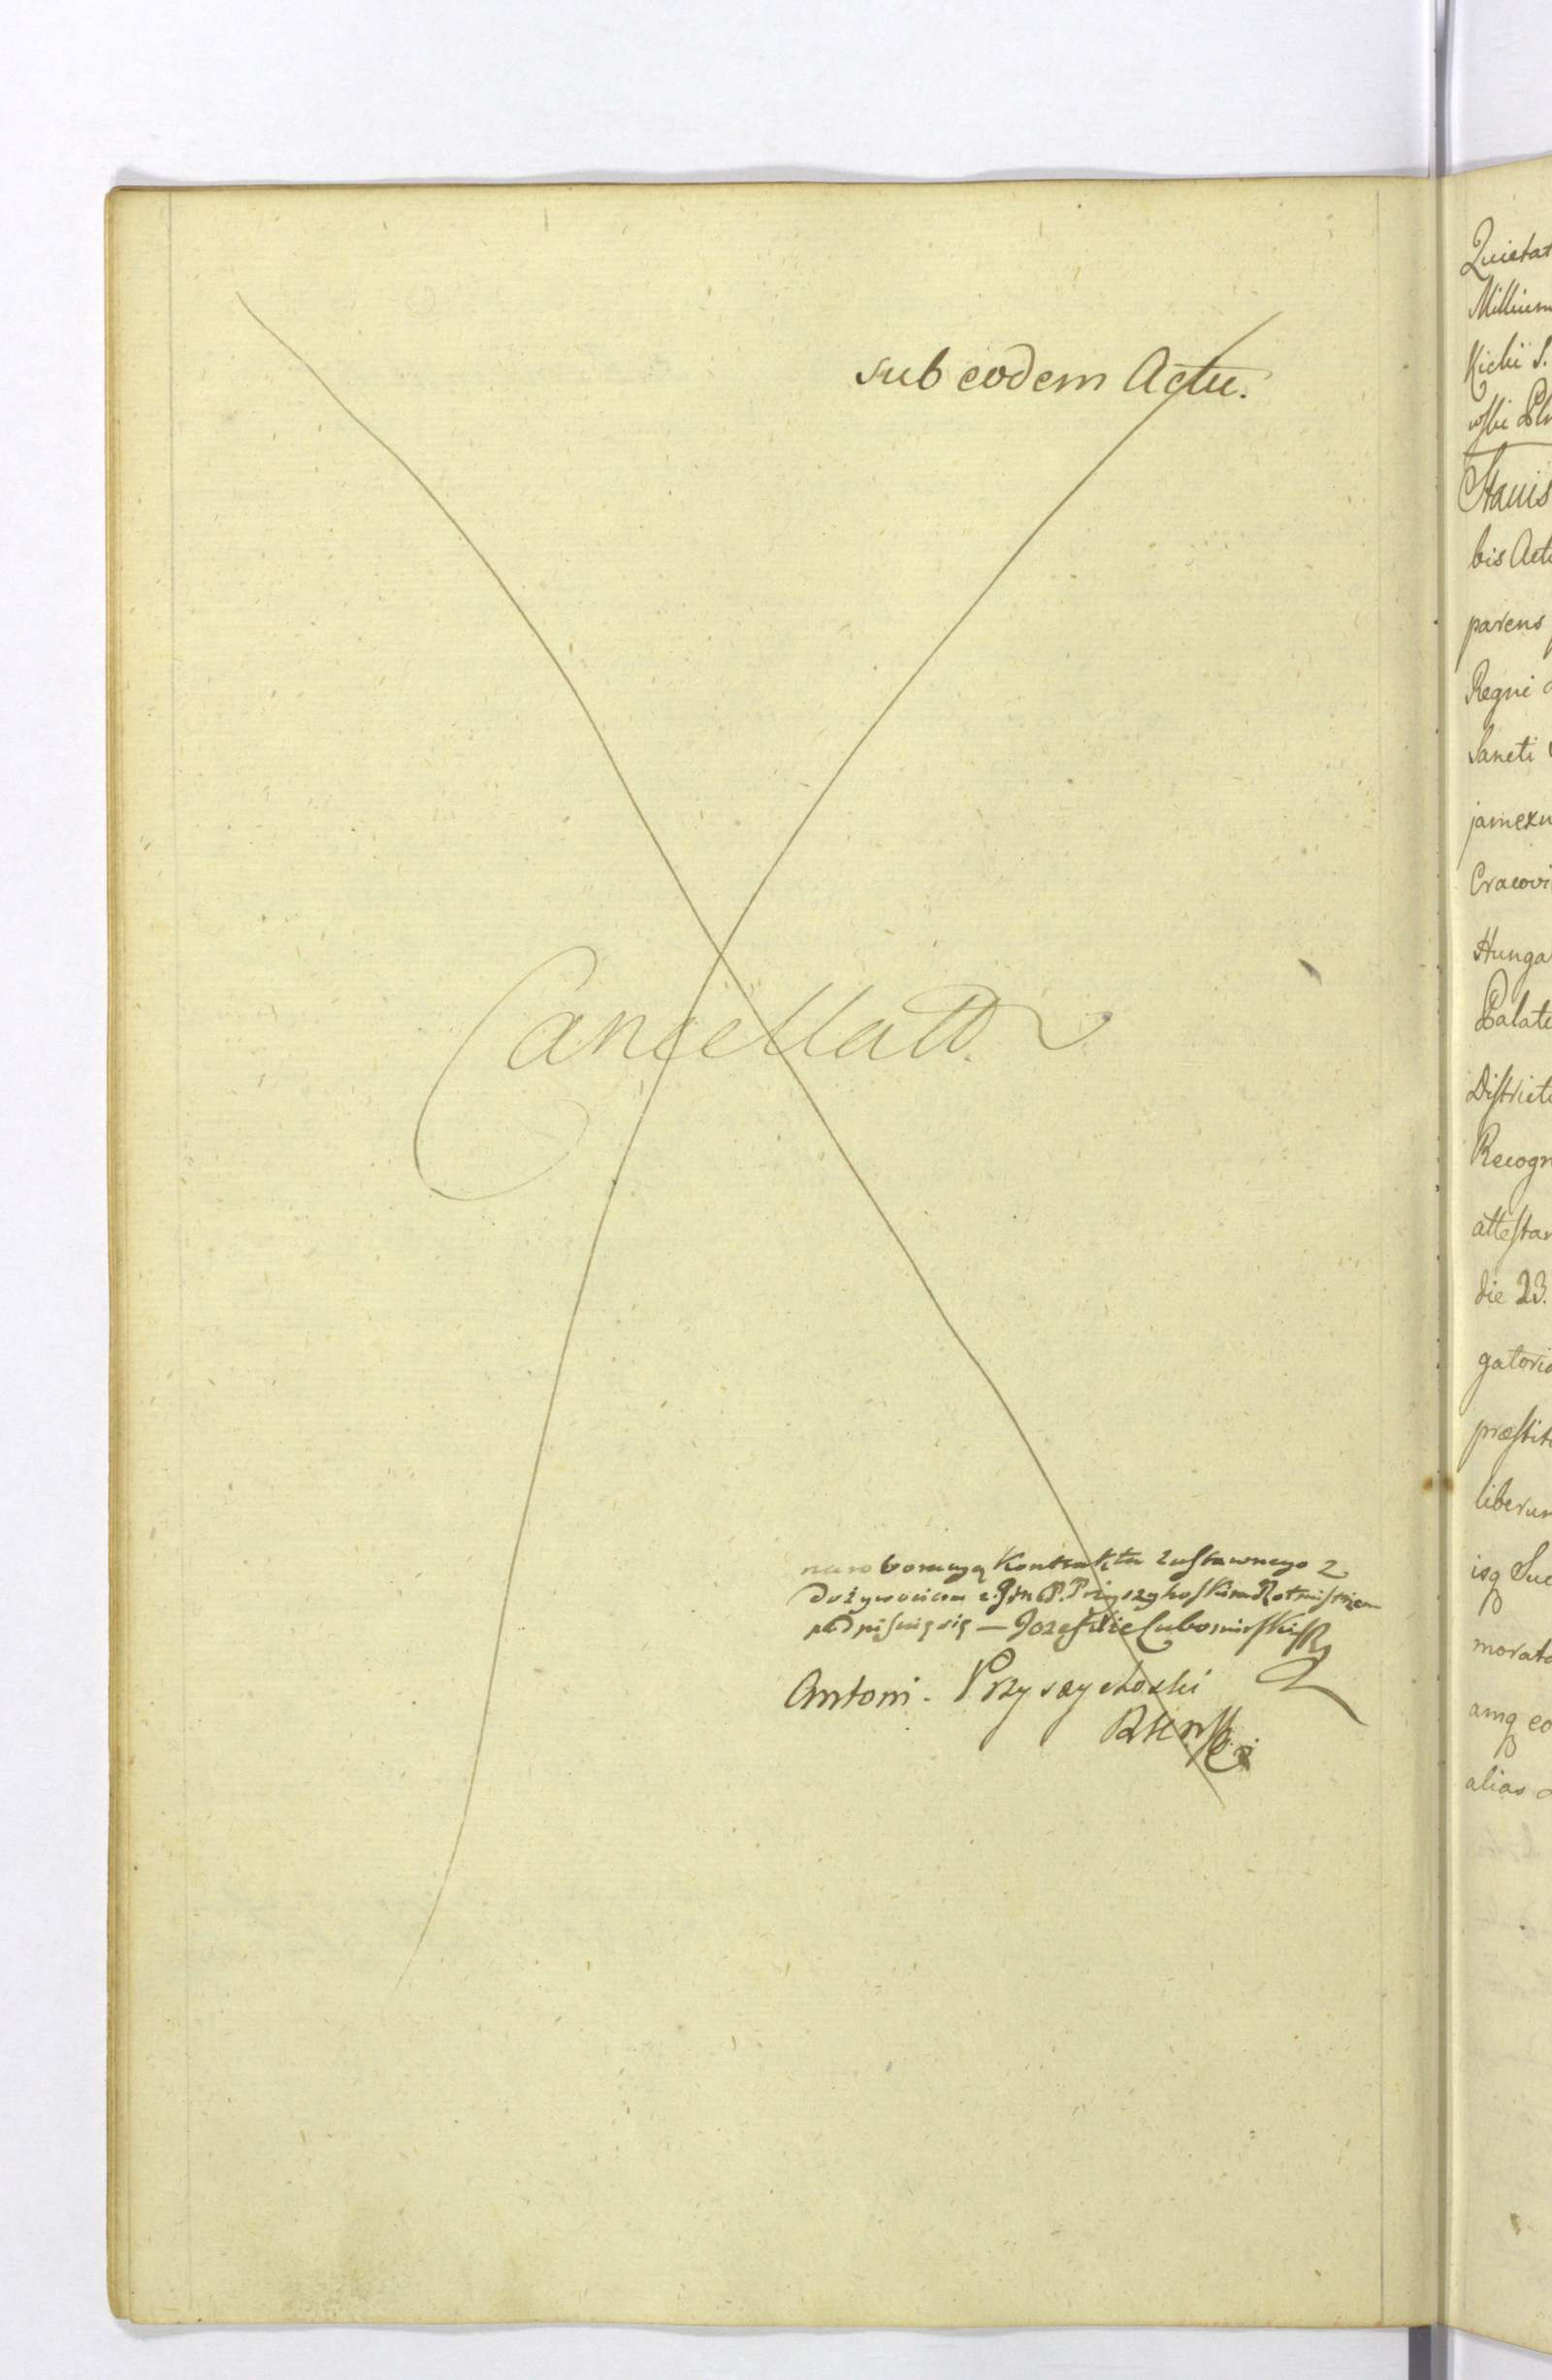 sub eodem Actu.
Cancellatt
roboracyą Kontraktu Zastawnego z
Dożywociem z P. Przyszychoskim Rotmistrzem
podpisuię się — Jozef Xże Lubomirski
Antoni. Przyszychoski
Quietat
Millium
Kicki S.
wski
Stanis
bis Act
parens
Regni
Sancti
jamexu
Cracovi
Hunga
Palati
District
Recogn
attestan
die 23.
gatorio
præstit
liberum
isq Suc
morato
amq eo
alias